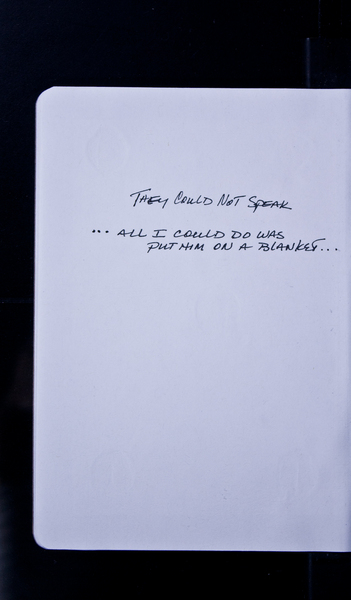 They Could Not Speak
... ALL I COULD DO WAS
PUT HIM ON A BLANKET...